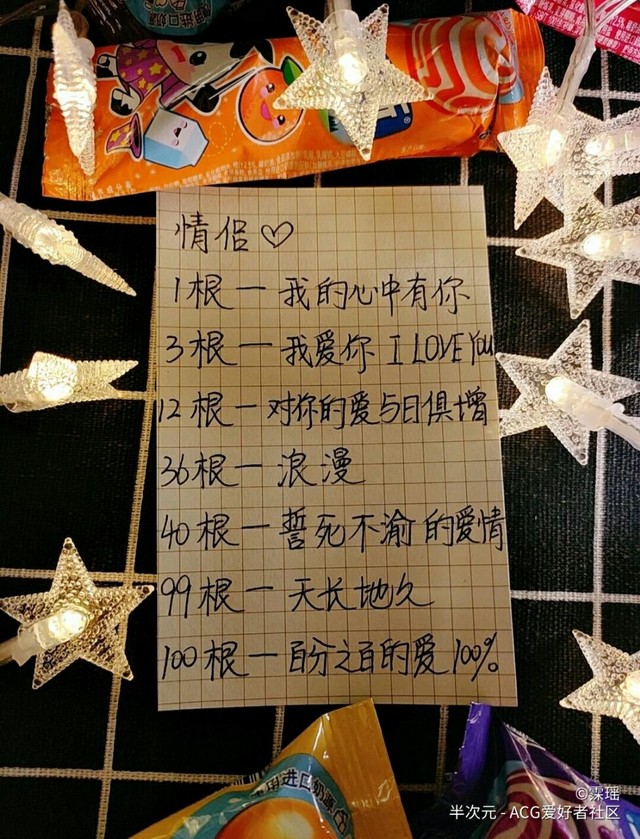 情侣♡
1根一我的心中有你
3根一我爱你 I LOVE YOU
12根一对你的爱与日俱增
36根一浪漫
40根一誓死不渝的爱情
99根一天长地久
100根一百分之百的爱100%
半次元 - ACG爱好者社区